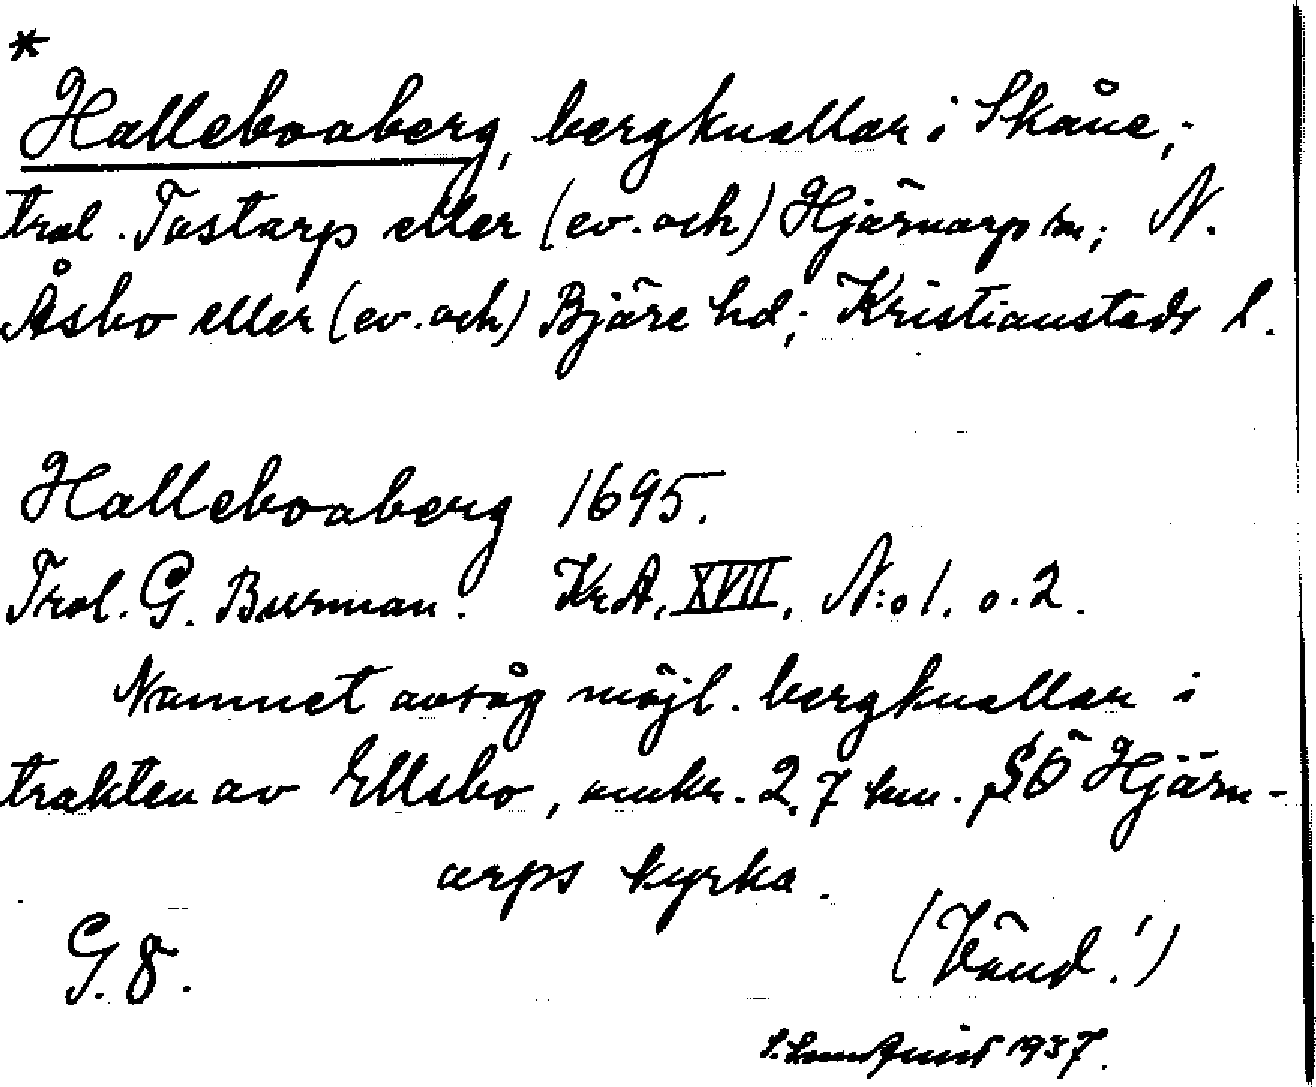 *
Halleboaberg, bergknallar i Skåne,;
trol. Tåstarp eller (ev. och) Hjärnarp sn.; N.
Åsbo eller (ev. och) Bjäre hd; Kristianstads l.
Halleboaberg 1695.
Trol. G. Burman. Kr.A. XVII. N:o 1. o. 2.
Namnet avsåg möjl. bergknallar i
trakten av Ellsbo, omkr. 2,7 km. SÖ Hjärn-
arps kyrka.
G. 8.
(Vänd!)
1937.